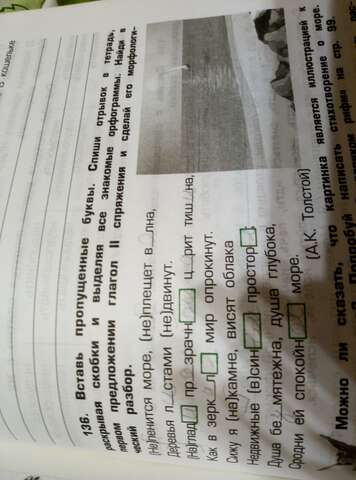 в кошельке
136. Вставь пропущенные буквы. Спиши отрывок в тетрадь,
раскрывая скобки и выделяя все знакомые орфограммы. Найди в
первом предложении глагол II спряжения и сделай его морфологи-
ческий разбор.
(Не)пенится море, (не)плещет в_лна,
Деревья л_стами (не)двинут.
(На)глад□ пр_зрачн□ ц_рит тиш_на,
Как в зерк_л□ мир опрокинут.
Сижу я (на)камне, висят облака
Недвижные (в)син□ простор□.
Душа бе_мятежна, душа глубока,
Сродни ей спокойн□ море.
(А.К. Толстой)
Можно ли сказать, что картинка является иллюстрацией к
Попробуй написать стихотворение о море.
рифмы на стр. 99.